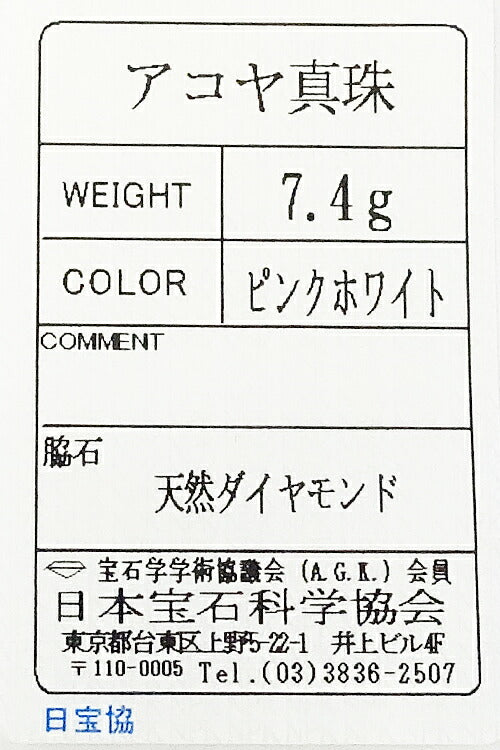 アコヤ真珠
WEIGHT 7.4g
COLOR ピンクホワイト
COMMENT
脇石
天然ダイヤモンド
宝石学学術協議会(A.G.K.)会員
日本宝石科学協会
東京都台東区上野5-22-1 井上ビル4F
〒110-0005 Tel.(03)3836-2507
日宝協